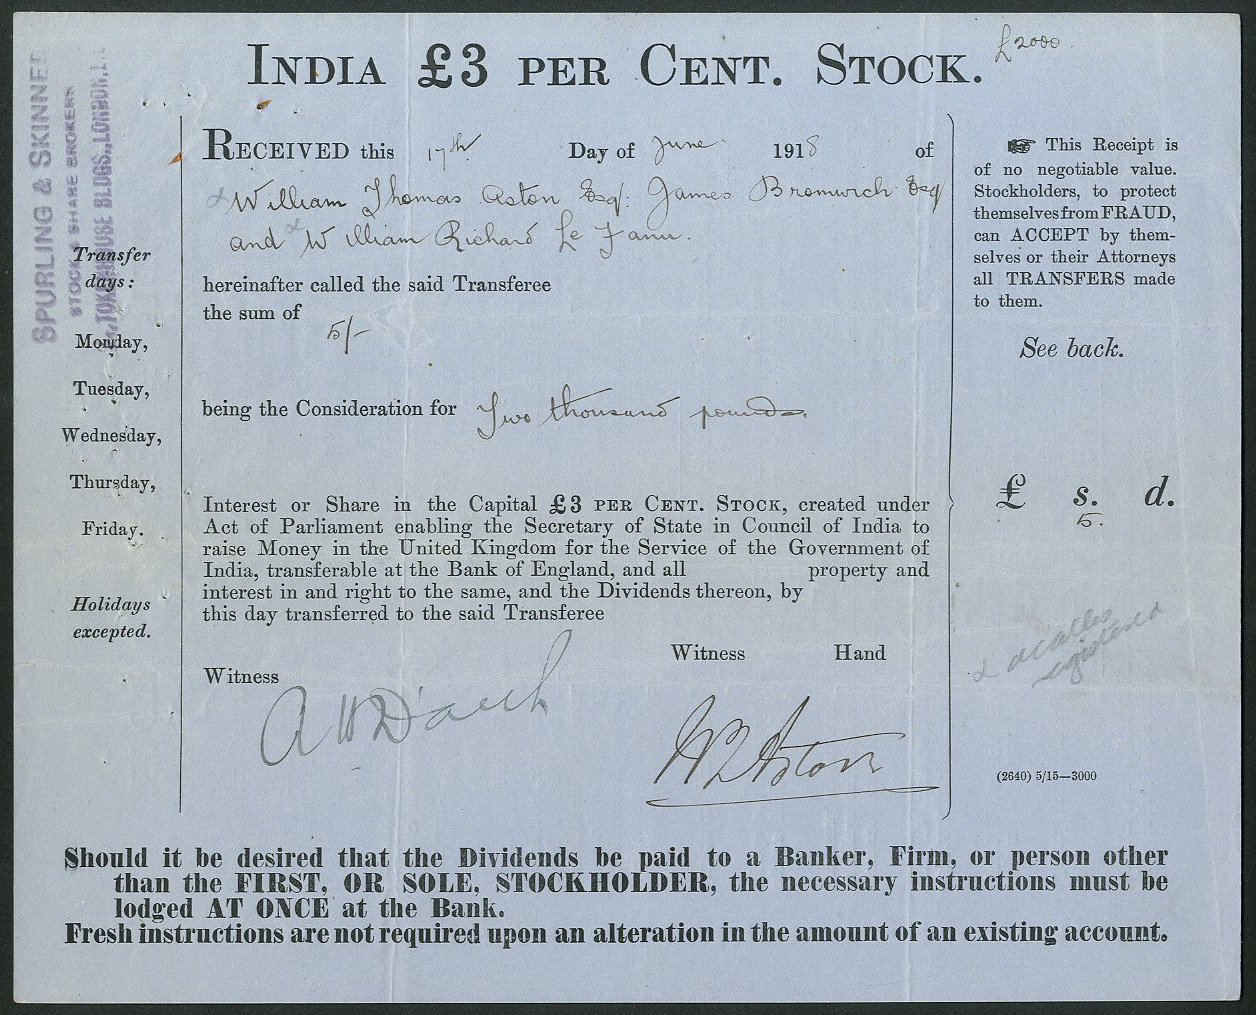 £2000.
INDIA £3 PER CENT. STOCK.
SPURLING & SKINNER
STOCK & SHARE BROKERS
TOKENHOUSE BLDGS., LONDON, E.
RECEIVED this 17th Day of June 1918 of
William Thomas Aston Esq. James Bromwich Esq
and William Richard Le Fanu.
hereinafter called the said Transferee
the sum of
5/-
being the Consideration for Two thousand pounds.
Interest or Share in the Capital £3 PER CENT. STOCK, created under
Act of Parliament enabling the Secretary of State in Council of India to
raise Money in the United Kingdom for the Service of the Government of
India, transferable at the Bank of England, and all property and
interest in and right to the same, and the Dividends thereon, by
this day transferred to the said Transferee
Witness Hand
Witness
W T Aston
Transfer
days:
Monday,
Tuesday,
Wednesday,
Thursday,
Friday.
Holidays
excepted.
☞ This Receipt is
of no negotiable value.
Stockholders, to protect
themselves from FRAUD,
can ACCEPT by them-
selves or their Attorneys
all TRANSFERS made
to them.
See back.
£ s. d.
5.
(2640) 5/15—3000
Should it be desired that the Dividends be paid to a Banker, Firm, or person other
than the FIRST, OR SOLE, STOCKHOLDER, the necessary instructions must be
lodged AT ONCE at the Bank.
Fresh instructions are not required upon an alteration in the amount of an existing account.